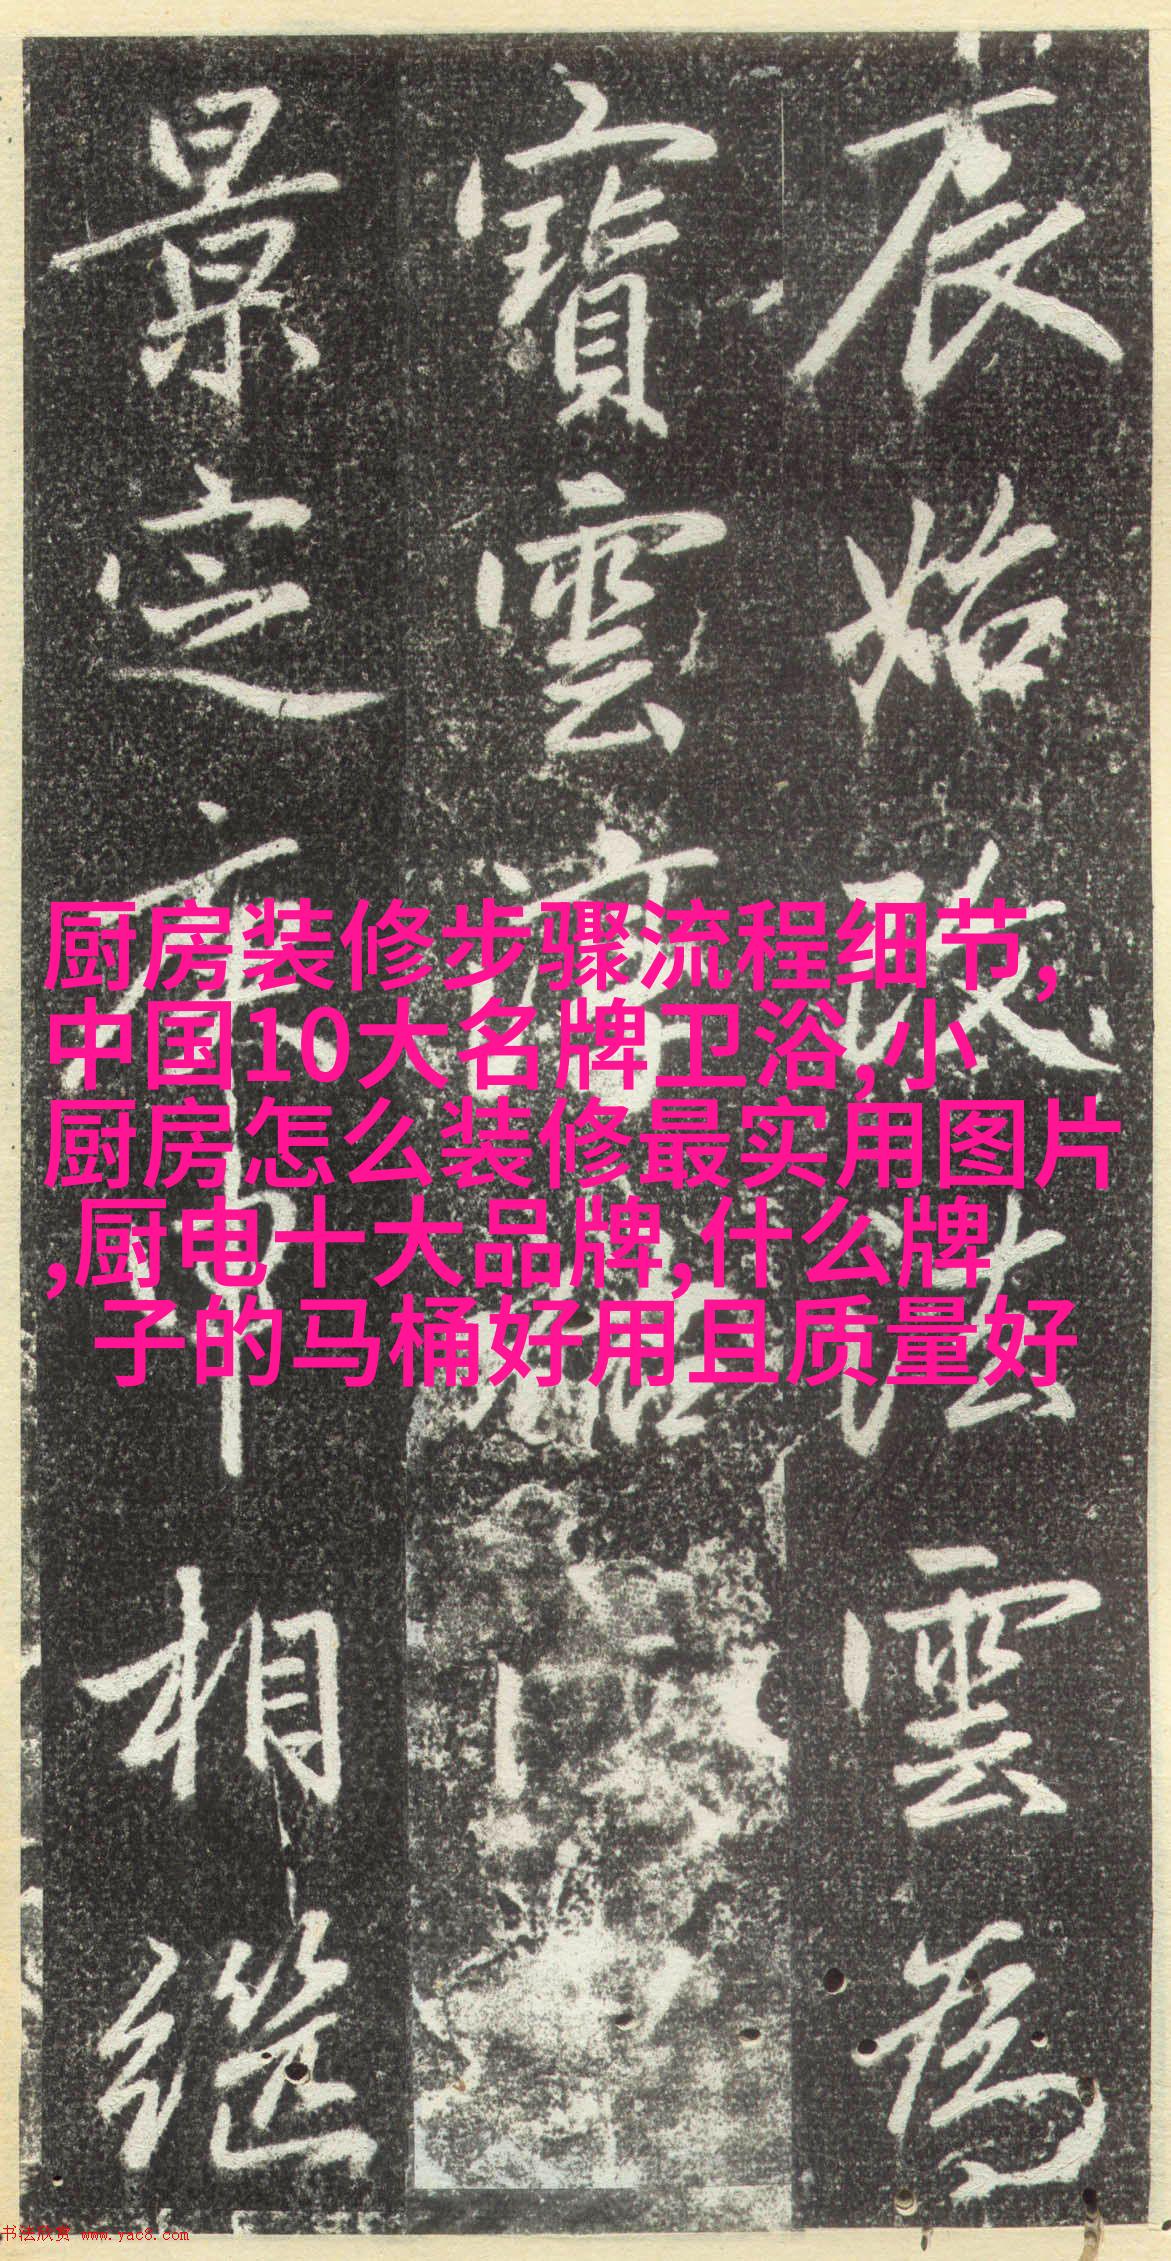 辰始改法雲為
寶雲
景定庚申相繼
厨房装修步骤流程细节,
中国10大名牌卫浴,小
厨房怎么装修最实用图片
,厨电十大品牌,什么牌
子的马桶好用且质量好
书法欣赏 www.yac8.com